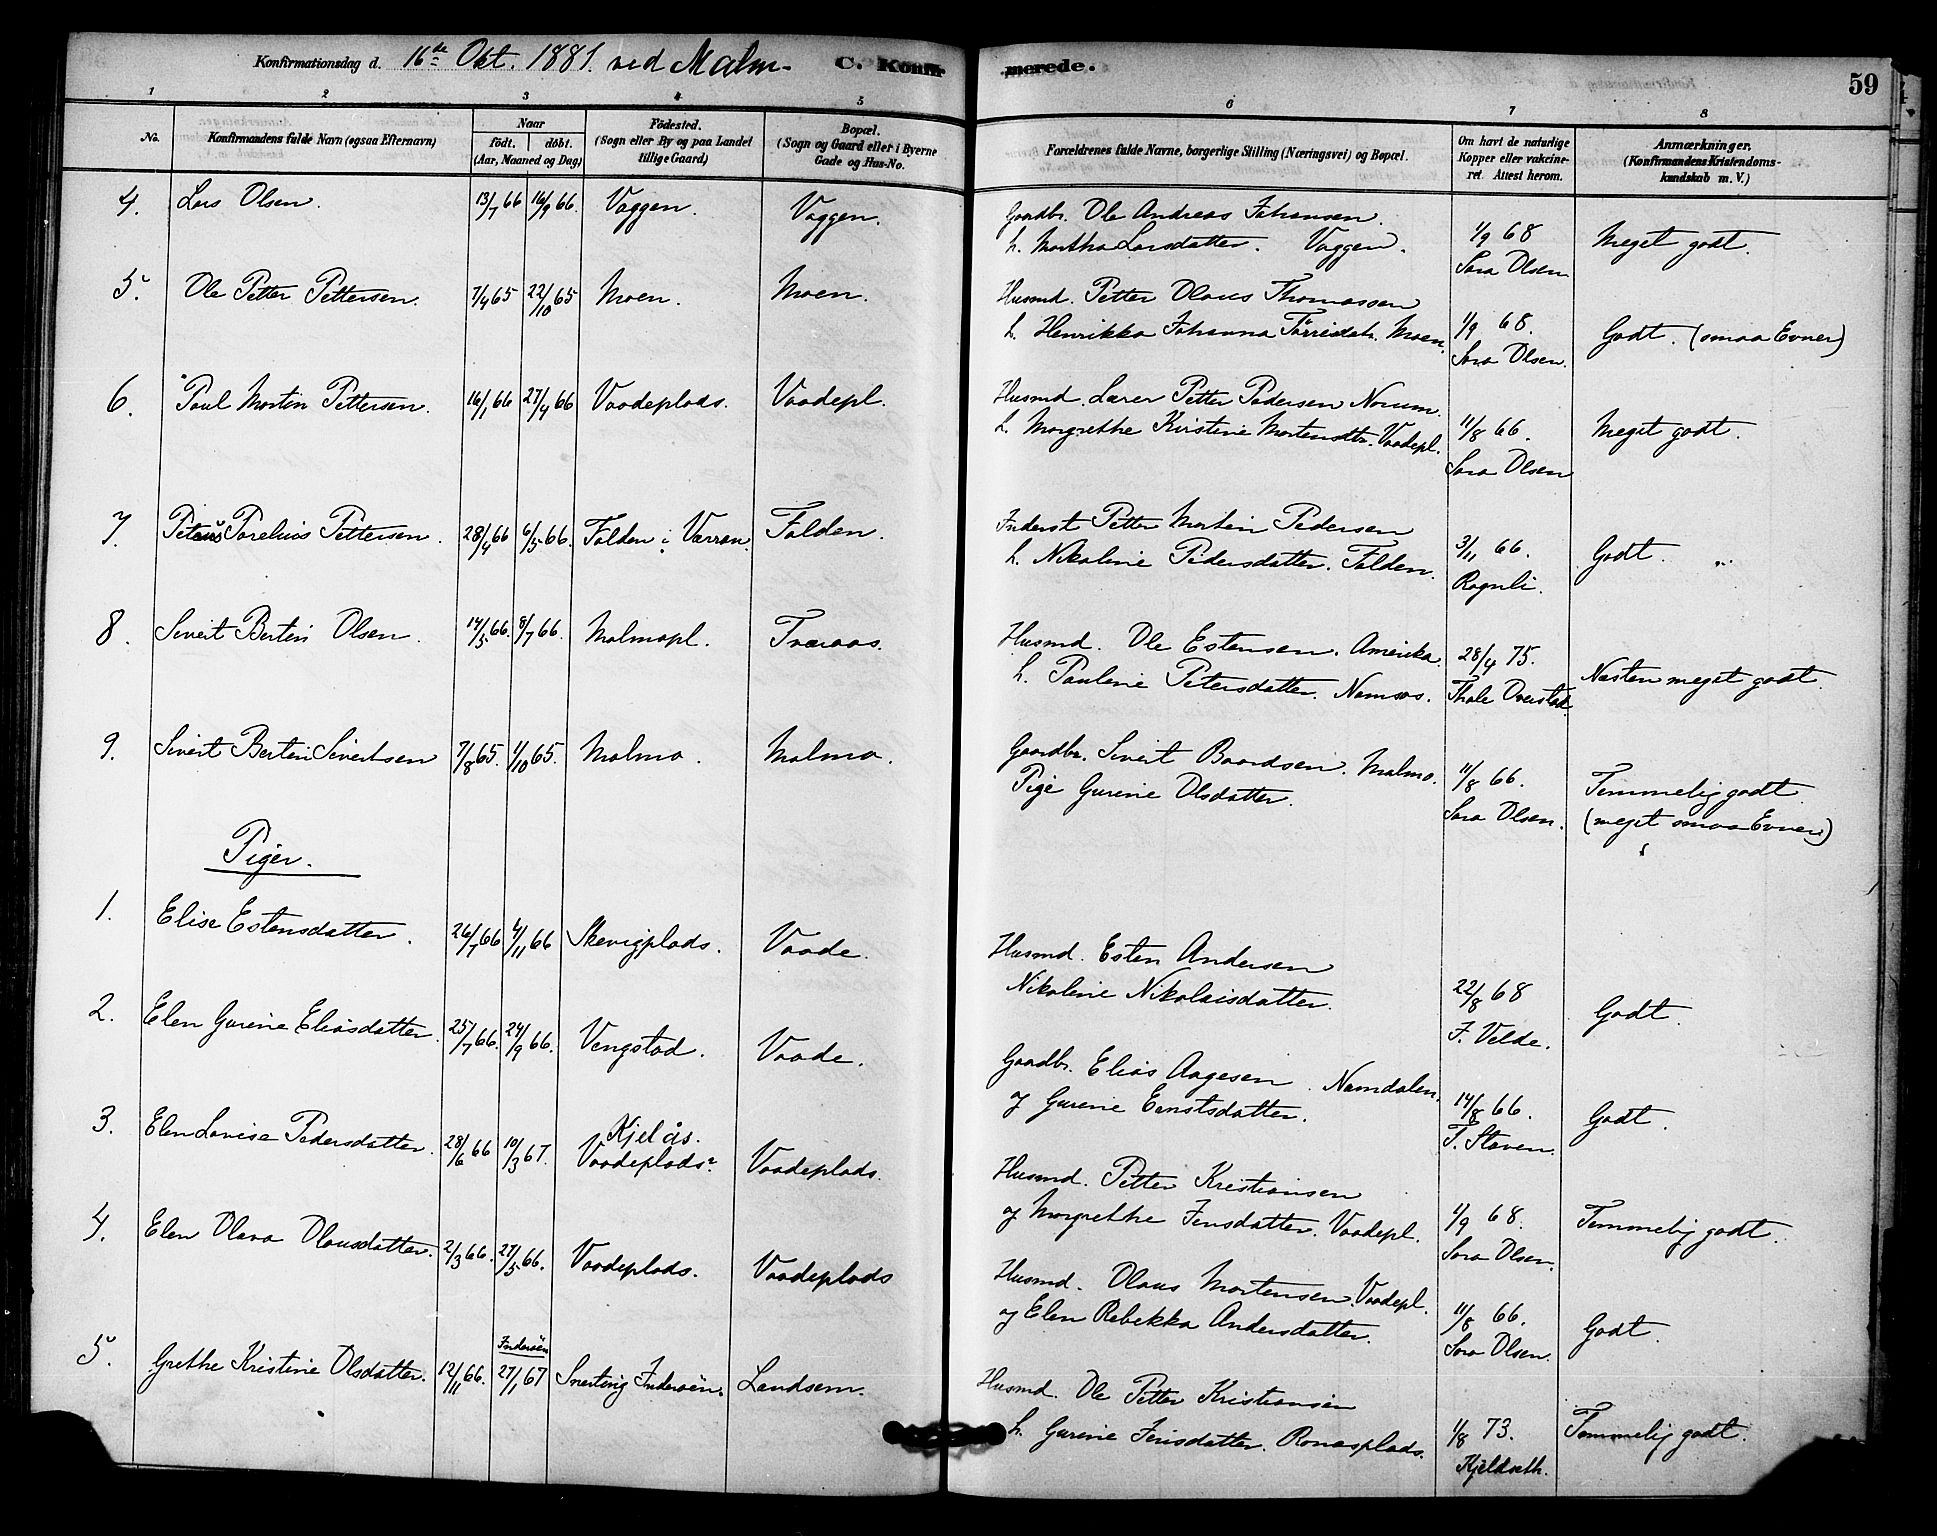 Konfirmationsdag d. 16de Okt. 1881. ved Malm. C. Konfirmerede. 59
1 2 3 4 5 6 7 8
No.
Konfirmandens fulde Navn (ogsaa Efternavn)
Naar
født. døbt.
(Aar, Maaned og Dag)
Fødested.
(Sogn eller By og paa Landet
tillige Gaard)
Bopæl.
(Sogn og Gaard eller i Byerne
Gade og Hus-No.
Forældrenes fulde Navne, borgerlige Stilling (Næringsvei) og Bopæl.
Om havt de naturlige
Kopper eller vakcine-
ret. Attest herom.
Anmærkninger.
(Konfirmandens Kristendoms-
kundskab m. V.)
4. Lars Olsen. 13/7 66 16/9 66. Vaggen. Vaggen.
Gaardbr. Ole Andreas Johansen.
h. Martha Larsdatter. Vaggen.
1/9 68
Sara Olsen
Meget godt.
5. Ole Petter Pettersen. 7/4 65 22/10 65 Moen. Moen.
Husmd. Petter Olaus Thomassen
h. Henrikka Johanna Tørrisdatr. Moen.
1/9 68.
Sara Olsen.
Godt. (smaa Evner)
6. Paul Martin Pettersen. 16/1 66 27/4 66 Vaadeplads. Vaadepl.
Husmd. Lærer Petter Pedersen Norum.
h. Margrethe Kristine Mortensdtr. Vaadepl.
11/8 66.
Sara Olsen
Meget godt.
7. Petaus Parelius Pettersen. 28/4 66 6/5 66. Folden i Værran. Folden.
Inderst Petter Martin Pedersen
h. Nikoline Pedersdatter. Folden.
3/11 66.
Ragnli.
Godt.
8. Sivert Bertin Olsen. 14/5 66. 8/7 66. Malmopl. Tværaas.
Husmd. Ole Estensen. Amerika.
h. Pauline Petersdatter. Namsos.
28/4 75.
Thale Overstad.
Næsten meget godt.
9. Sivert Bertin Sivertsen 7/8 65. 1/10 65. Malmo. Malmo.
Gaardbr. Sivert Baardsen. Malmo.
Pige Gurine Olsdatter.
11/8 66.
Sara Olsen.
Temmelig godt.
(meget smaa Evner)
Piger.
1. Elise Estensdatter. 26/7 66 4/11 66 Skevigplads. Vaade.
Husmd. Esten Andersen
Nikoline Nikolaisdatter.
22/8 68
J. Velde.
Godt.
2. Elen Gurine Eliasdatter. 25/7 66. 24/9 66. Vengstad. Vaade.
Gaardbr. Elias Aagesen. Namdalen.
og Gurine Ernstsdatter.
14/8 66.
T. Staven.
Godt.
3. Elen Lovise Pedersdatter. 28/6 66 10/3 67. Kjelås.
Vaadeplads? Vaadeplads.
Husmd. Petter Kristiansen
og Margrethe Jensdatter. Vaadepl.
1/9 68.
Sara Olsen.
Temmelig godt.
4. Elen Olava Olausdatter. 2/3 66. 27/5 66. Vaadeplads. Vaadeplads
Husmd. Olaus Mortensen. Vaadepl.
og Elen Rebekka Andersdatter.
11/8 66.
Sara Olsen.
Godt.
5. Grethe Kristine Olsdatter. 12/11 66. Inderøen
27/1 67 Snerting Inderøen. Landsem.
Husmd. Ole Petter Kristiansen
h. Gurine Jensdatter. Ronæsplads.
1/8 73.
Kjeldseth.
Temmelig godt.